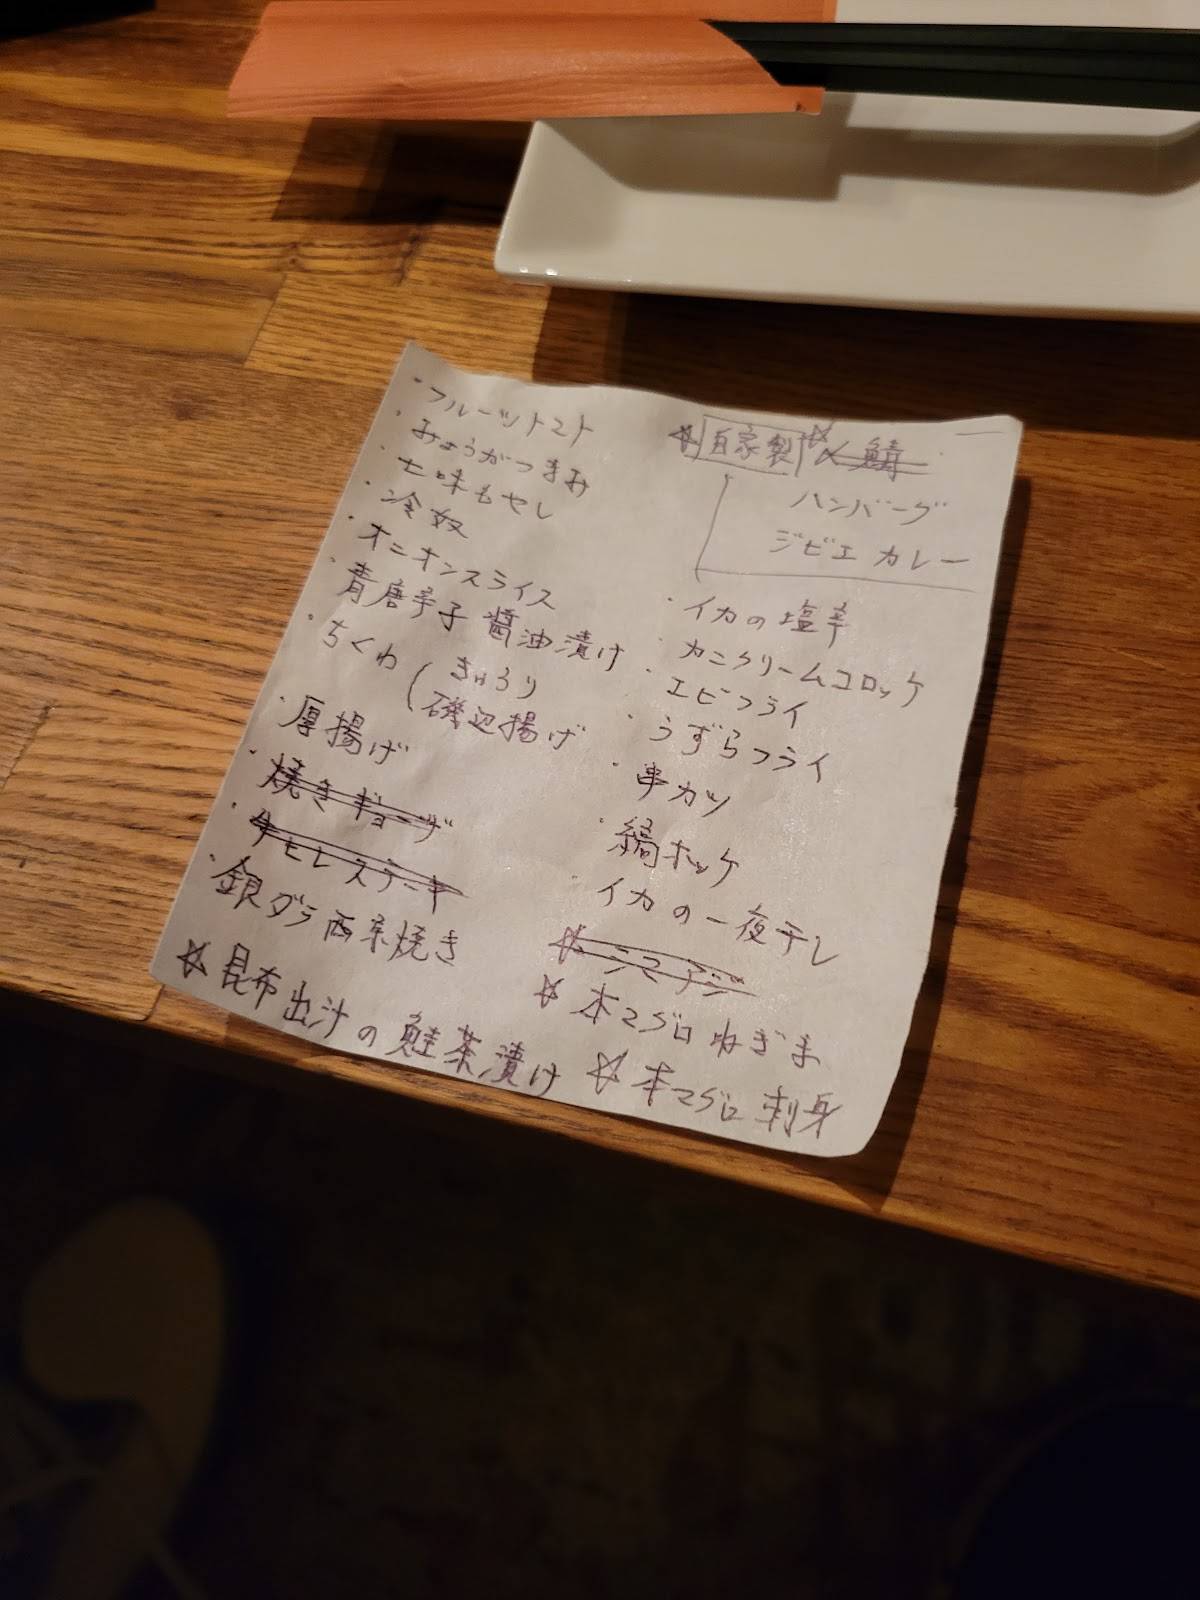 ・フルーツトマト
・みょうがつまみ
・七味もやし
・冷奴
・オニオンスライス
・青唐辛子醤油漬け
・ちくわ(きゅうり
磯辺揚げ
・厚揚げ
・焼きギョーザ
・タモレステーキ
・銀ダラ西京焼き
☆昆布出汁の鮭茶漬け
☆自家製☆〆鯖
ハンバーグ
ジビエカレー
・イカの塩辛
・カニクリームコロッケ
・エビフライ
・うずらフライ
・串カツ
・縞ホッケ
・イカの一夜干し
☆シマアジ
☆本マグロねぎま
☆本マグロ刺身